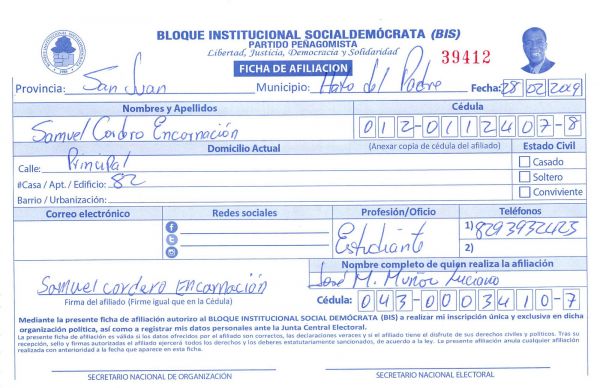 BLOQUE INSTITUCIONAL SOCIALDEMÓCRATA (BIS)
PARTIDO PEÑAGOMISTA
Libertad, Justicia, Democracia y Solidaridad
39412
FICHA DE AFILIACION
Provincia: San Juan Municipio: Hato del Padre Fecha: 28 02 2019
Nombres y Apellidos Cédula
Samuel Cordero Encarnación 012-0112407-8
Domicilio Actual (Anexar copia de cédula del afiliado) Estado Civil
Calle: Principal Casado
#Casa / Apt. / Edificio: 82 Soltero
Barrio / Urbanización: Conviviente
Correo electrónico Redes sociales Profesión/Oficio Teléfonos
Estudiante 1) 8293932423
2)
Nombre completo de quien realiza la afiliación
Samuel cordero Encarnación José M. Muñoz Luciano
Firma del afiliado (Firme igual que en la Cédula) Cédula: 043-0003410-7
Mediante la presente ficha de afiliación autorizo al BLOQUE INSTITUCIONAL SOCIAL DEMÓCRATA (BIS) a realizar mi inscripción única y exclusiva en dicha
organización política, así como a registrar mis datos personales ante la Junta Central Electoral.
La presente ficha de afiliación es válida si los datos ofrecidos por el afiliado son correctos, las declaraciones veraces y si el afiliado tiene el disfrute de sus derechos civiles y políticos. Tras su
recepción, sello y firmas autorizadas el afiliado ejercerá todos los derechos y los deberes estatutariamente sancionados, de acuerdo a la ley. Le presente afiliación anula cualquier afiliación
realizada con anterioridad a la fecha que aparece en esta ficha.
SECRETARIO NACIONAL DE ORGANIZACIÓN SECRETARIO NACIONAL ELECTORAL